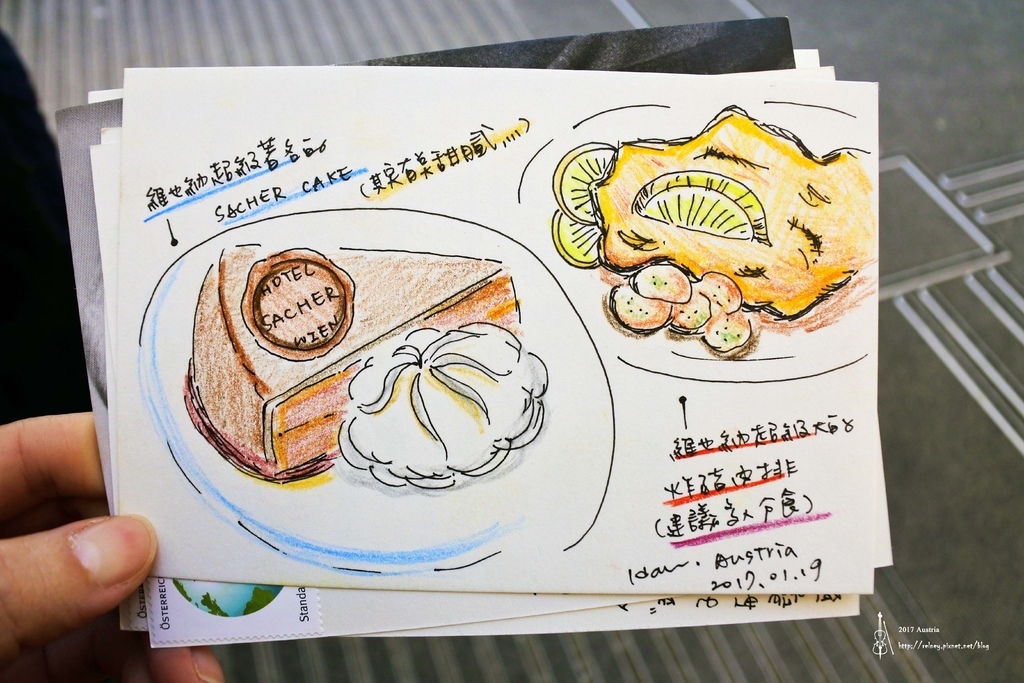 維也納超級著名的
SACHER CAKE
(其實有點甜膩...)
HOTEL
SACHER
WIEN
維也納超級大的
炸豬排
(建議多人分食)
Austria
2017.01.19
ÖSTERREIC
Standa
2017 Austria
http://relney.pixnet.net/blog